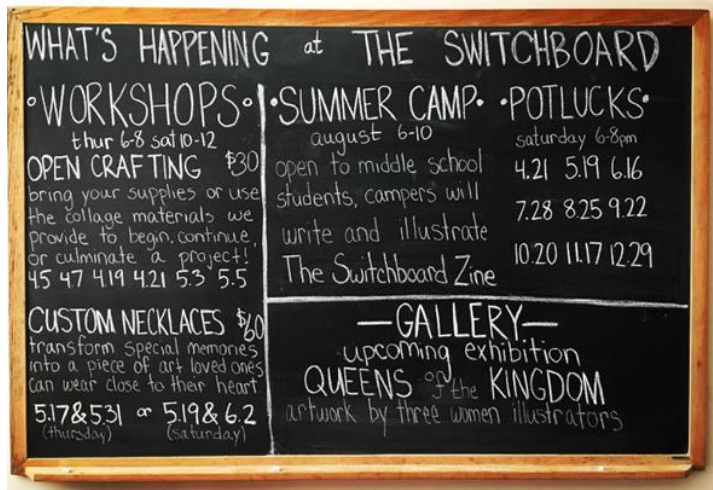 WHAT'S HAPPENING at THE SWITCHBOARD
•WORKSHOPS•
thur 6-8 sat 10-12
OPEN CRAFTING $30
bring your supplies or use
the collage materials we
provide to begin, continue,
or culminate a project!
4.5 4.7 4.19 4.21 5.3 5.5
CUSTOM NECKLACES $60
transform special memories
into a piece of art loved ones
can wear close to their heart
5.17&5.31 or 5.19&6.2
(thursday) (saturday)
•SUMMER CAMP•
august 6-10
open to middle school
students, campers will
write and illustrate
The Switchboard Zine
•POTLUCKS•
saturday 6-8pm
4.21 5.19 6.16
7.28 8.25 9.22
10.20 11.17 12.29
—GALLERY—
upcoming exhibition
QUEENS of the KINGDOM
artwork by three women illustrators